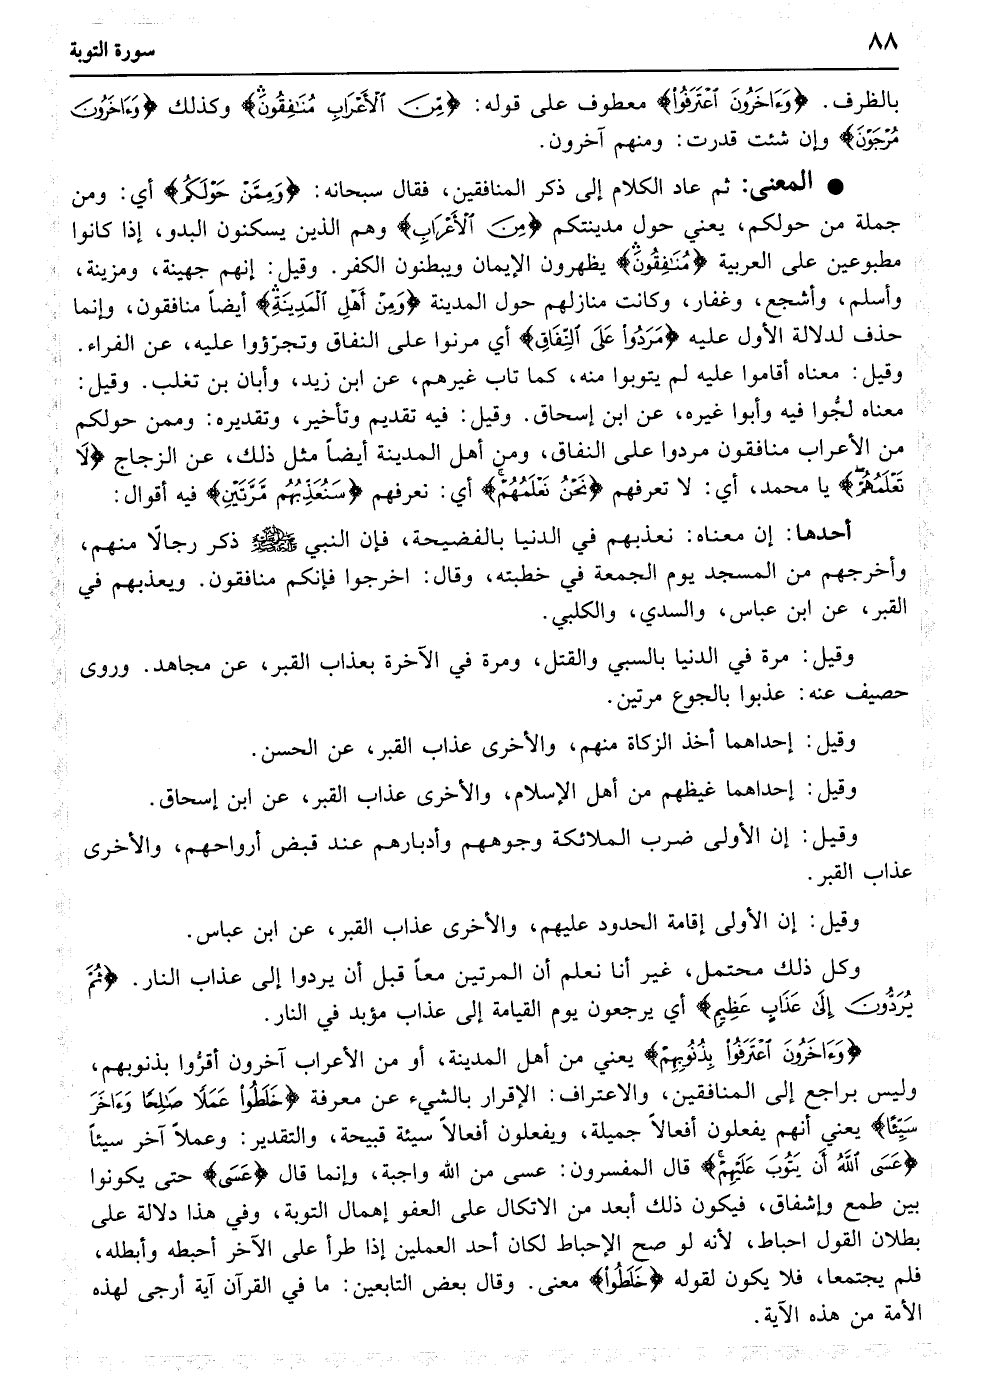 ٨٨
سورة التوبة
بالظرف. ﴿وَءَاخَرُونَ ٱعْتَرَفُوا۟﴾ معطوف على قوله: ﴿مِّنَ ٱلْأَعْرَابِ مُنَٰفِقُونَۖ﴾ وكذلك ﴿وَءَاخَرُونَ
مُرْجَوْنَ﴾ وإن شئت قدرت: ومنهم آخرون.
● المعنى: ثم عاد الكلام إلى ذكر المنافقين، فقال سبحانه: ﴿وَمِمَّنْ حَوْلَكُم﴾ أي: ومن
جملة من حولكم، يعني حول مدينتكم ﴿مِّنَ ٱلْأَعْرَابِ﴾ وهم الذين يسكنون البدو، إذا كانوا
مطبوعين على العربية ﴿مُنَٰفِقُونَۖ﴾ يظهرون الإيمان ويبطنون الكفر. وقيل: إنهم جهينة، ومزينة،
وأسلم، وأشجع، وغفار، وكانت منازلهم حول المدينة ﴿وَمِنْ أَهْلِ ٱلْمَدِينَةِۖ﴾ أيضاً منافقون، وإنما
حذف لدلالة الأول عليه ﴿مَرَدُوا۟ عَلَى ٱلنِّفَاقِ﴾ أي مرنوا على النفاق وتجرّؤوا عليه، عن الفراء.
وقيل: معناه أقاموا عليه لم يتوبوا منه، كما تاب غيرهم، عن ابن زيد، وأبان بن تغلب. وقيل:
معناه لجُّوا فيه وأبوا غيره، عن ابن إسحاق. وقيل: فيه تقديم وتأخير، وتقديره: وممن حولكم
من الأعراب منافقون مردوا على النفاق، ومن أهل المدينة أيضاً مثل ذلك، عن الزجاج ﴿لَا
تَعْلَمُهُمْۖ﴾ يا محمد، أي: لا تعرفهم ﴿نَحْنُ نَعْلَمُهُمْۚ﴾ أي: نعرفهم ﴿سَنُعَذِّبُهُم مَّرَّتَيْنِ﴾ فيه أقوال:
أحدها: إن معناه: نعذبهم في الدنيا بالفضيحة، فإن النبي ﷺ ذكر رجالًا منهم،
وأخرجهم من المسجد يوم الجمعة في خطبته، وقال: اخرجوا فإنكم منافقون. ويعذبهم في
القبر، عن ابن عباس، والسدي، والكلبي.
وقيل: مرة في الدنيا بالسبي والقتل، ومرة في الآخرة بعذاب القبر، عن مجاهد. وروى
حصيف عنه: عذبوا بالجوع مرتين.
وقيل: إحداهما أخذ الزكاة منهم، والأخرى عذاب القبر، عن الحسن.
وقيل: إحداهما غيظهم من أهل الإسلام، والأخرى عذاب القبر، عن ابن إسحاق.
وقيل: إن الأولى ضرب الملائكة وجوههم وأدبارهم عند قبض أرواحهم، والأخرى
عذاب القبر.
وقيل: إن الأولى إقامة الحدود عليهم، والأخرى عذاب القبر، عن ابن عباس.
وكل ذلك محتمل، غير أنا نعلم أن المرتين معاً قبل أن يردوا إلى عذاب النار. ﴿ثُمَّ
يُرَدُّونَ إِلَىٰ عَذَابٍ عَظِيمٍ﴾ أي يرجعون يوم القيامة إلى عذاب مؤبد في النار.
﴿وَءَاخَرُونَ ٱعْتَرَفُوا۟ بِذُنُوبِهِمْ﴾ يعني من أهل المدينة، أو من الأعراب آخرون أقرُّوا بذنوبهم،
وليس براجع إلى المنافقين، والاعتراف: الإقرار بالشيء عن معرفة ﴿خَلَطُوا۟ عَمَلًا صَٰلِحًا وَءَاخَرَ
سَيِّئًا﴾ يعني أنهم يفعلون أفعالاً جميلة، ويفعلون أفعالاً سيئة قبيحة، والتقدير: وعملاً آخر سيئاً
﴿عَسَى ٱللَّهُ أَن يَتُوبَ عَلَيْهِمْۚ﴾ قال المفسرون: عسى من الله واجبة، وإنما قال ﴿عَسَى﴾ حتى يكونوا
بين طمع وإشفاق، فيكون ذلك أبعد من الاتكال على العفو إهمال التوبة، وفي هذا دلالة على
بطلان القول احباط، لأنه لو صح الإحباط لكان أحد العملين إذا طرأ على الآخر أحبطه وأبطله،
فلم يجتمعا، فلا يكون لقوله ﴿خَلَطُوا۟﴾ معنى. وقال بعض التابعين: ما في القرآن آية أرجى لهذه
الأمة من هذه الآية.